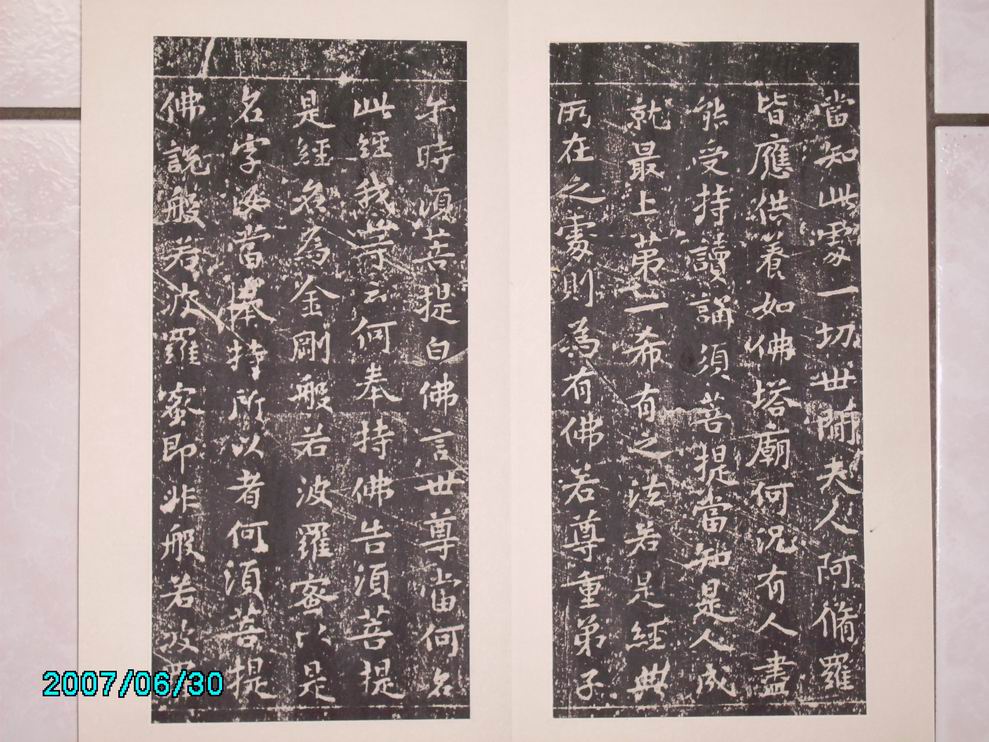 當知此處一切世間天人阿脩羅
皆應供養如佛塔廟何況有人盡
能受持讀誦須菩提當知是人成
就最上第一希有之法若是經典
所在之處則為有佛若尊重弟子
尔時須菩提白佛言世尊當何名
此經我等云何奉持佛告須菩提
是經名為金剛般若波羅蜜以是
名字汝當奉持所以者何須菩提
佛說般若波羅蜜即非般若波羅
2007/06/30